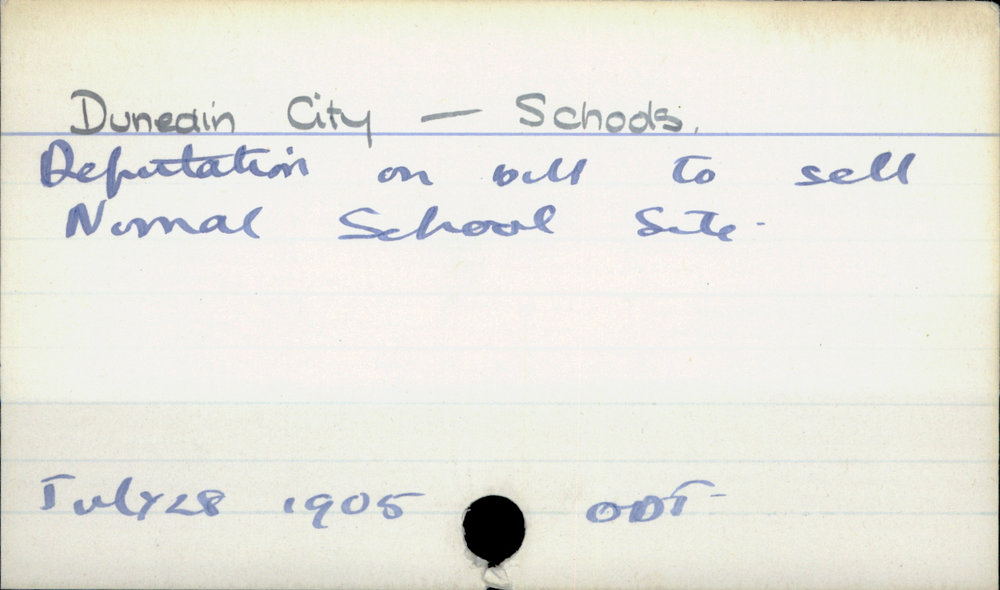 Dunedin City — Schools.
Deputation on bill to sell
Normal School Site.
July 28 1905 ODT